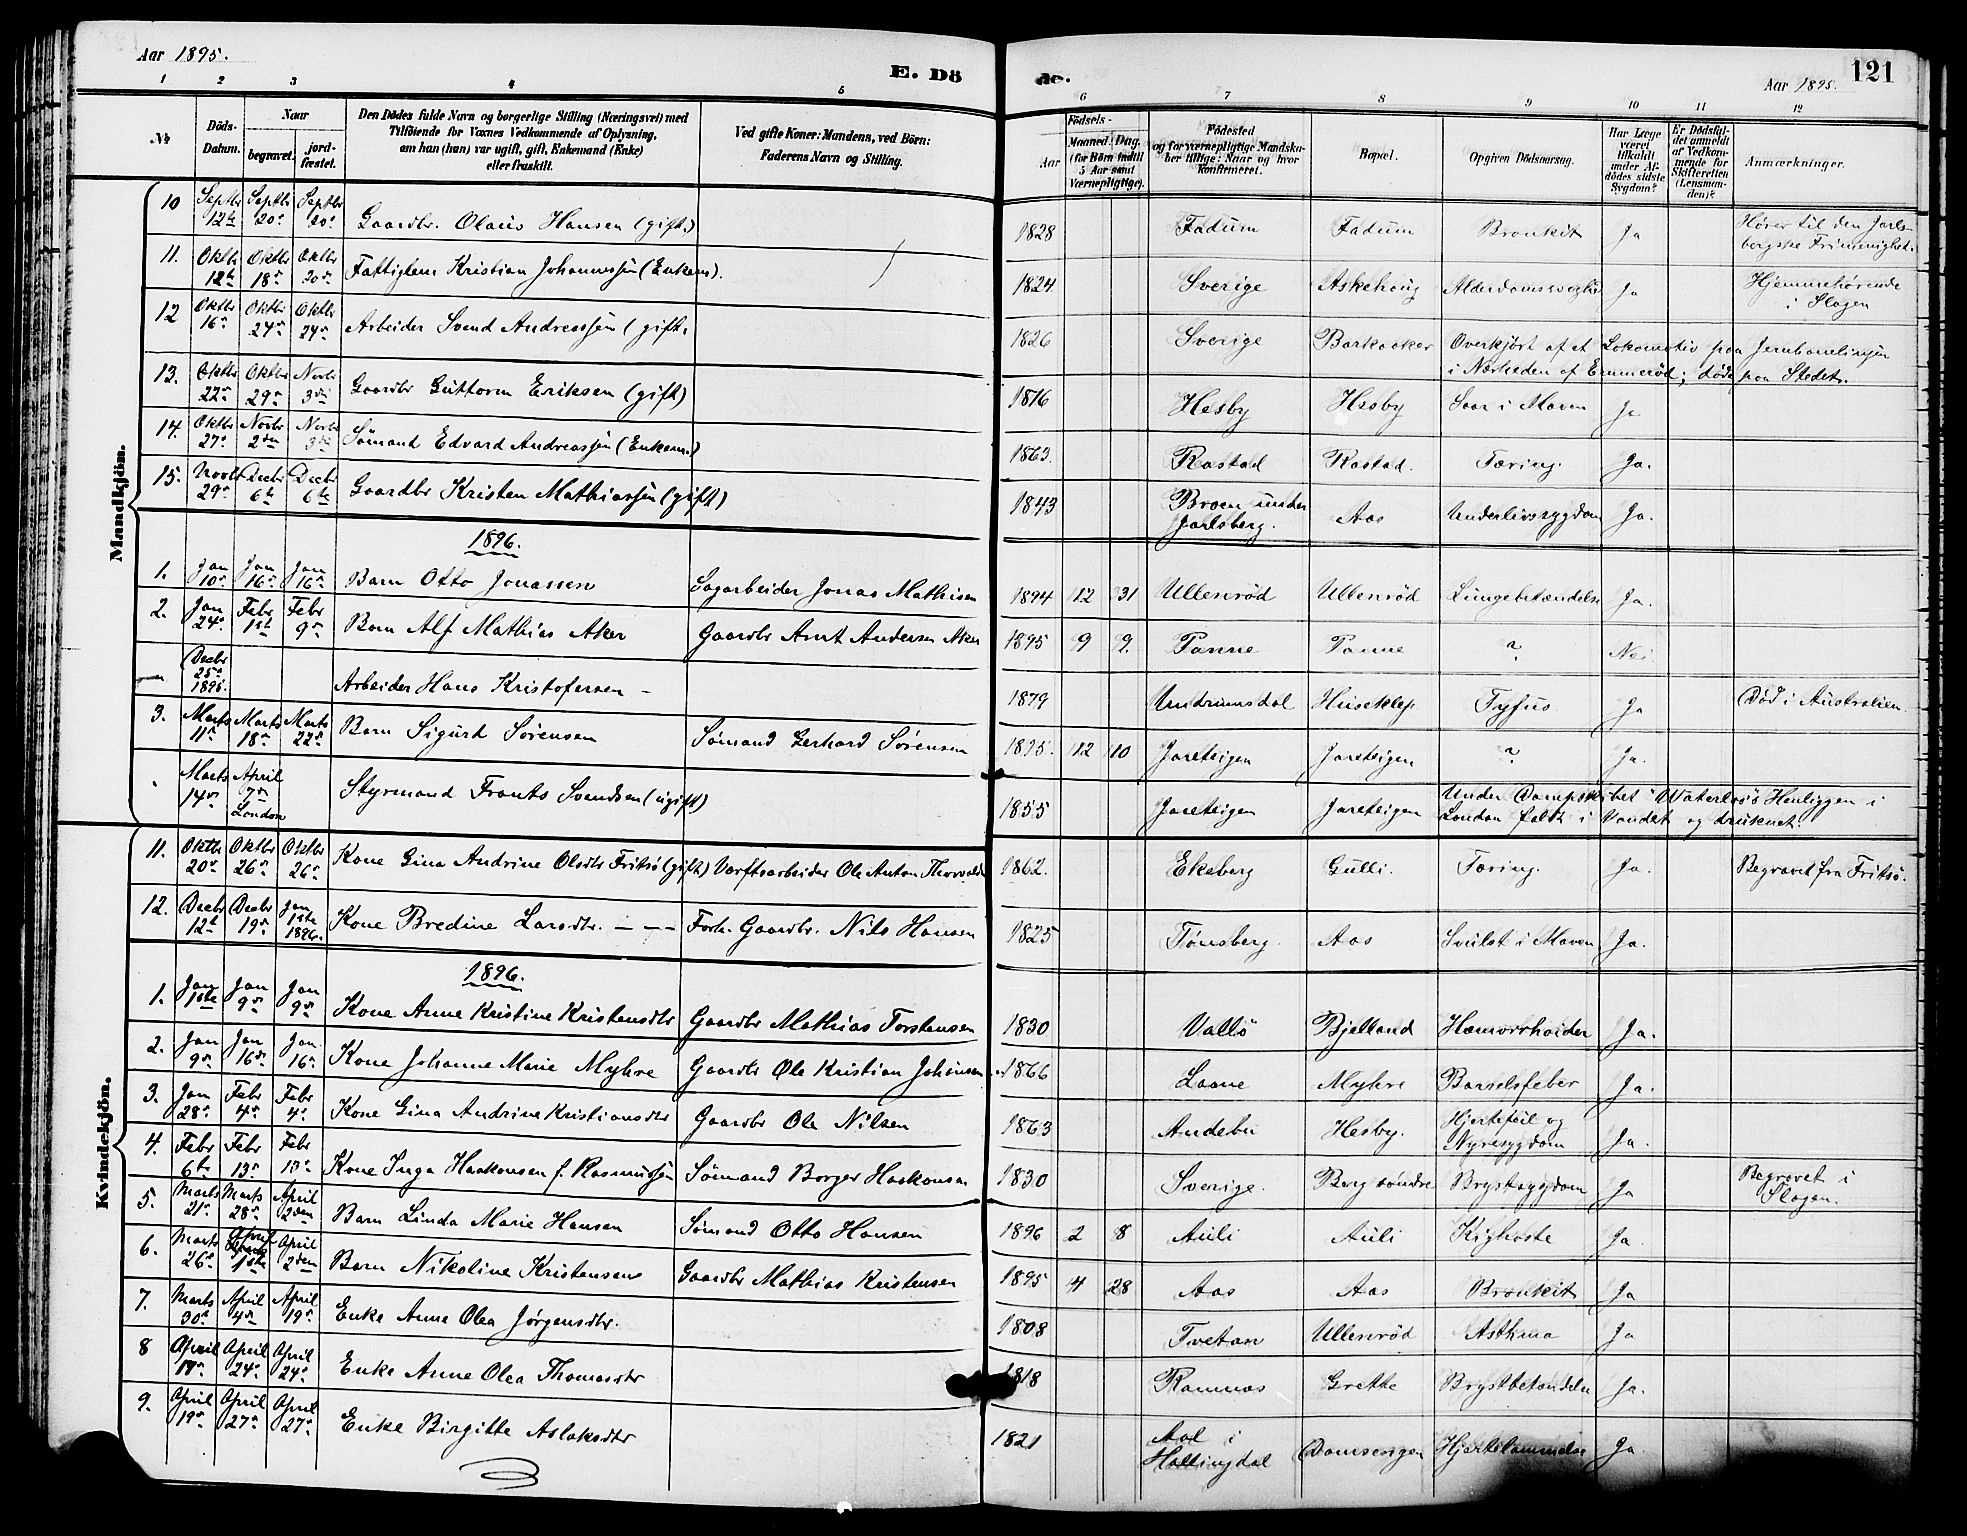 Aar 1895.
E. Dö
de.
Aar 1895.
121
1 2 3 4 5 6 7 8 9 10 11 12
№
Döds-Datum.
Naar
begravet.
jord-fæstet.
Den Dödes fulde Navn og borgerlige Stilling (Næringsvei) med
Tilföiende for Voxnes Vedkommende af Oplysning,
om han (hun) var ugift, gift, Enkemand (Enke)
eller fraskilt.
Ved gifte Koner: Mandens, ved Börn:
Faderens Navn og Stilling.
Födsels-
Aar
Maaned. Dag.
(for Börn indtil
5 Aar samt
Værnepligtige).
Födested
og for værnepligtige Mandska-
ber tillige: Naar og hvor
konfirmeret.
Bopæl.
Opgiven Dödsaarsag.
Har Læge
været
tilkaldt
under Af-
dödes sidste
Sygdom?
Er Dödsfal-
det anmeldt
af Vedkom-
mende for
Skifteretten
(Lensman-
den)?
Anmærkninger.
Mandkjön.
10 Septbr 12te Septbr 20de Septbr 20de Gaardbr. Olaus Hansen (gift) 1828 Fadum Fadum Bronkit Ja Hører til den Jarls-
bergske Frimenighed.
11. Oktbr 12te Oktbr 18de Oktbr 20de Fattiglem Kristian Johannessen (Enkem). 1824 Sverige Askehoug Alderdomssvaghed Ja Hjemmehørende
i Slagen
12 Oktbr 16de Oktbr 24de Oktbr 24de Arbeider Svend Andreassen (gift. 1826 Sverige Barkaaker Overkjørt af et Lokomotiv paa Jernbanelinjen
i Nærheden af Emmerød; døde paa Stedet.
13. Oktbr 22de Oktbr 29de Novbr 3die Gaardbr Guttorm Eriksen (gift) 1816 Hesby Hesby Saar i Maven Ja
14. Oktbr 27de Novbr 2den Novbr 3die Sömand Edvard Andreassen (Enkem.) 1863. Rastad Rastad. Tæring. Ja.
15. Novbr 29de Decbr 6te Decbr 6te Gaardbr Kristen Mathiassen (gift) 1843 Broen under
Jarlsberg. Aas Underlivssygdom Ja.
1896.
1. Jan 10de Jan 16de Jan 16de Barn Otto Jonassen Sagarbeider Jonas Mathisen 1894 12 31 Ullenrød Ullenrød Lungebetændelse Ja.
2. Jan 24de Febr 1ste Febr 9de Barn Alf Mathias Aker Gaardbr Anut Andersen Aker 1895 9 9. Panne Panne ? Nei.
— Decbr 25de 1895. Arbeider Hans Kristofersen – 1879 Undrumsdal Huseklep Tyfus Ja Død i Australien.
3. Marts 11te Marts 18de Marts 22de Barn Sigurd Sørensen Sømand Gerhard Sørensen 1895. 12 10 Jareteigen Jareteigen ? Ja.
Marts 14de April 7de London Styrmand Frants Svendsen (ugift) 1855 Jareteigen Jareteigen Under Dampskibet "Waterloo's" Henliggen i
London faldt i Vandet og druknet.
Kvindekjön.
11. Oktbr 20de Oktbr 26de Oktbr 26de Kone Gina Andrine Olsdtr Fritsø (gift) Værftsarbeider Ole Anton Thorvalds 1862. Ekeberg Gulli. Tæring. Ja. Begravet fra Fritsø.
12. Decbr 12te Decbr 19de Jan 1ste 1896. Kone Bredine Larsdtr. – – – Forh. Gaardbr. Nils Hansen 1825 Tønsberg. Aas Svulst i Maven Ja.
1896.
1. Jan 1ste Jan 9de Jan 9de Kone Anne Kristine Kristensdtr Gaardbr Mathias Torstensen 1830 Vallø Bjelland Hæmorrhoider Ja.
2. Jan 9de Jan 16de Jan 16de Kone Johanne Marie Myhre Gaardbr Ole Kristian Johansen 1866 Laane Myhre Barselsfeber Ja.
3. Jan 28de Febr 4de Febr 4de Kone Gina Andrine Kristiansdtr Gaardbr Ole Nilsen 1863 Andebu Hesby. Hjertefeil og
Nyresygdom Ja.
4. Febr 6te Febr 13de Febr 13de Kone Inga Haakonsen f. Rasmussen Sømand Borger Haakonsen 1830 Sverige. Berg søndre Brystsygdom Ja Begravet i
Slagen.
5. Marts 21de Marts 28de April 2den Barn Linda Marie Hansen Sømand Otto Hansen 1896 2 8 Auli Auli Kighoste Ja
6. Marts 26de April 1ste April 2den Barn Nikoline Kristensene Gaardbr Mathias Kristensen 1895 4 28 Aas Aas Bronkit Ja
7. Marts 30te April 4de April 19de Enke Anne Olea Jørgensdtr. 1808 Tvetan Ullenrød Asthma Ja
8 April 17de April 24de April 24de Enke Anne Olea Thomasdtr 1818 Ramnæs Grette Brystbetændelse Ja.
9. April 19de April 27de April 27de Enke Birgitte Aslaksdtr 1821 Aal i
Hallingdal Damsengen Hjertelammelse Ja